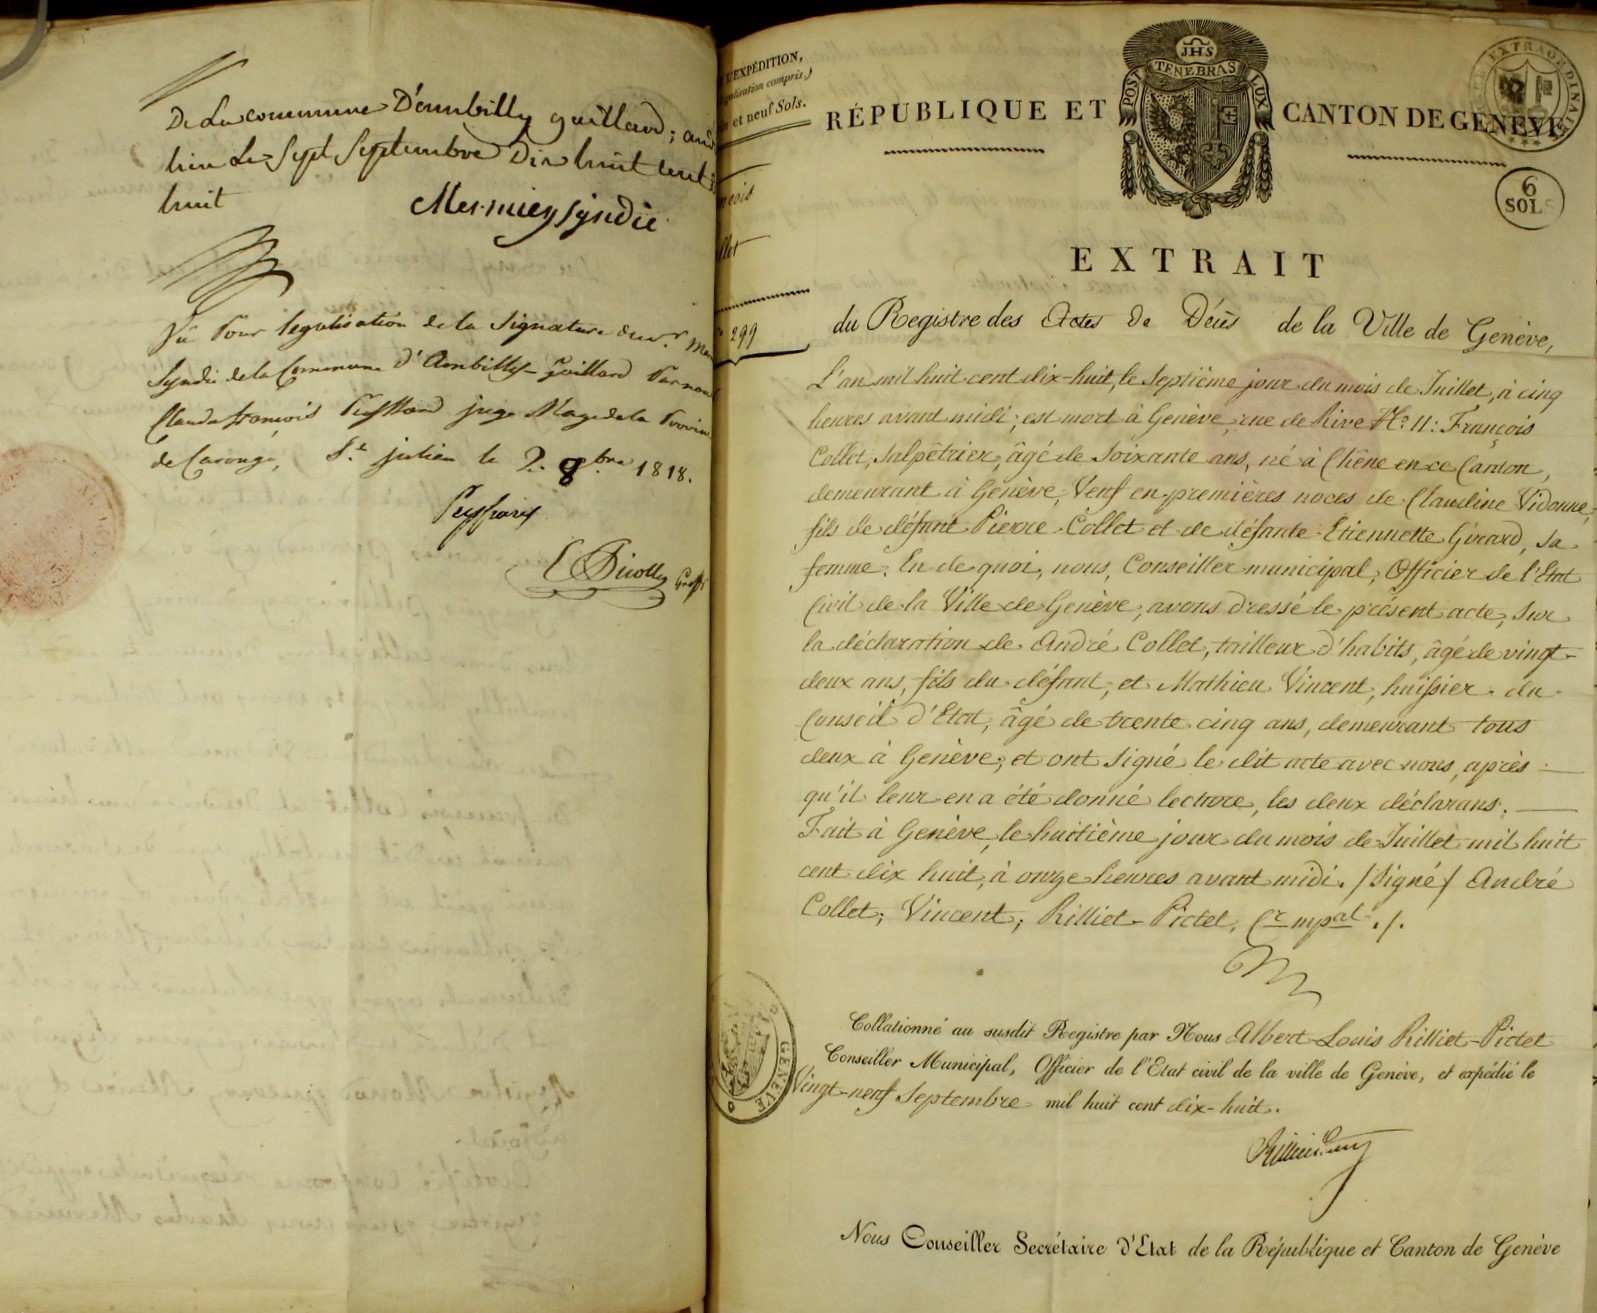 De La commune D'ambilly gaillard; au
lieu Le Sept Septembre Dix huit cent
huit
syndic
Vu Pour légalisation de la Signature du Sr.
Syndic de la Commune d'Ambilly-Gaillard Par nous
Claude françois juge Mage de la Provin
de Carouge, St. julien le 2. 8bre 1818.
L'EXPÉDITION,
légalisation compris)
et neuf Sols.
RÉPUBLIQUE ET CANTON DE GENÈVE
JHS
POST TENEBRAS LUX
EXTRAORDINAIRE
6
SOLS
nçois
llet
299
EXTRAIT
du Registre des Actes de Décès de la Ville de Genève,
L'an mil huit cent dix-huit, le Septième jour du mois de Juillet, à cinq
heures avant midi; est mort à Genève, rue de Rive No. 11: François
Collet, Salpêtrier, âgé de Soixante ans, né à Chêne en ce Canton,
demeurant à Genève, Veuf en premières noces de Claudine Vidonne,
fils de défunt Pierre Collet et de défunte Etiennette Girard, sa
femme. En de quoi, nous, Conseiller municipal, Officier de l'Etat
Civil de la Ville de Genève, avons dressé le présent acte, Sur
la déclaration de André Collet, tailleur d'habits, âgé de vingt-
deux ans, fils du défunt, et Mathieu Vincent, huissier du
Conseil d'Etat, âgé de trente cinq ans, demeurant tous
deux à Genève; et ont signé le dit acte avec nous, après
qu'il leur en a été donné lecture, les deux déclarans.
Fait à Genève, le huitième jour du mois de Juillet mil huit
cent dix huit, à onze heures avant midi. /Signé/ André
Collet; Vincent; Rilliet-Pictet, Cr. mpal ./.
GENEVE
Collationné au susdit Registre par Nous Albert-Louis Rilliet-Pictet
Conseiller Municipal, Officier de l'Etat civil de la ville de Genève, et expédié le
Vingt-neuf Septembre mil huit cent dix-huit.
Nous Conseiller Secrétaire d'Etat de la République et Canton de Genève